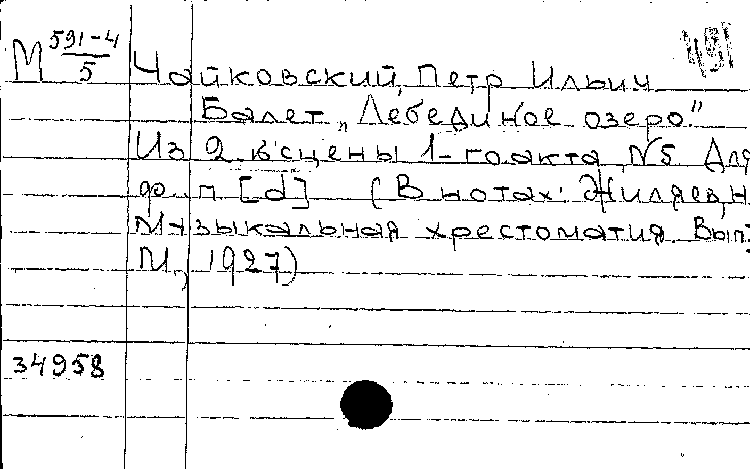 М 591-4/5
Чайковский, Петр Ильич
Балет „Лебединое озеро."
Из 2 в сцены 1-го акта N5 Для
ф. п. [d] (В нотах: Жиляев, Н
Музыкальная хрестоматия. Вып.
М., 1927)
34958